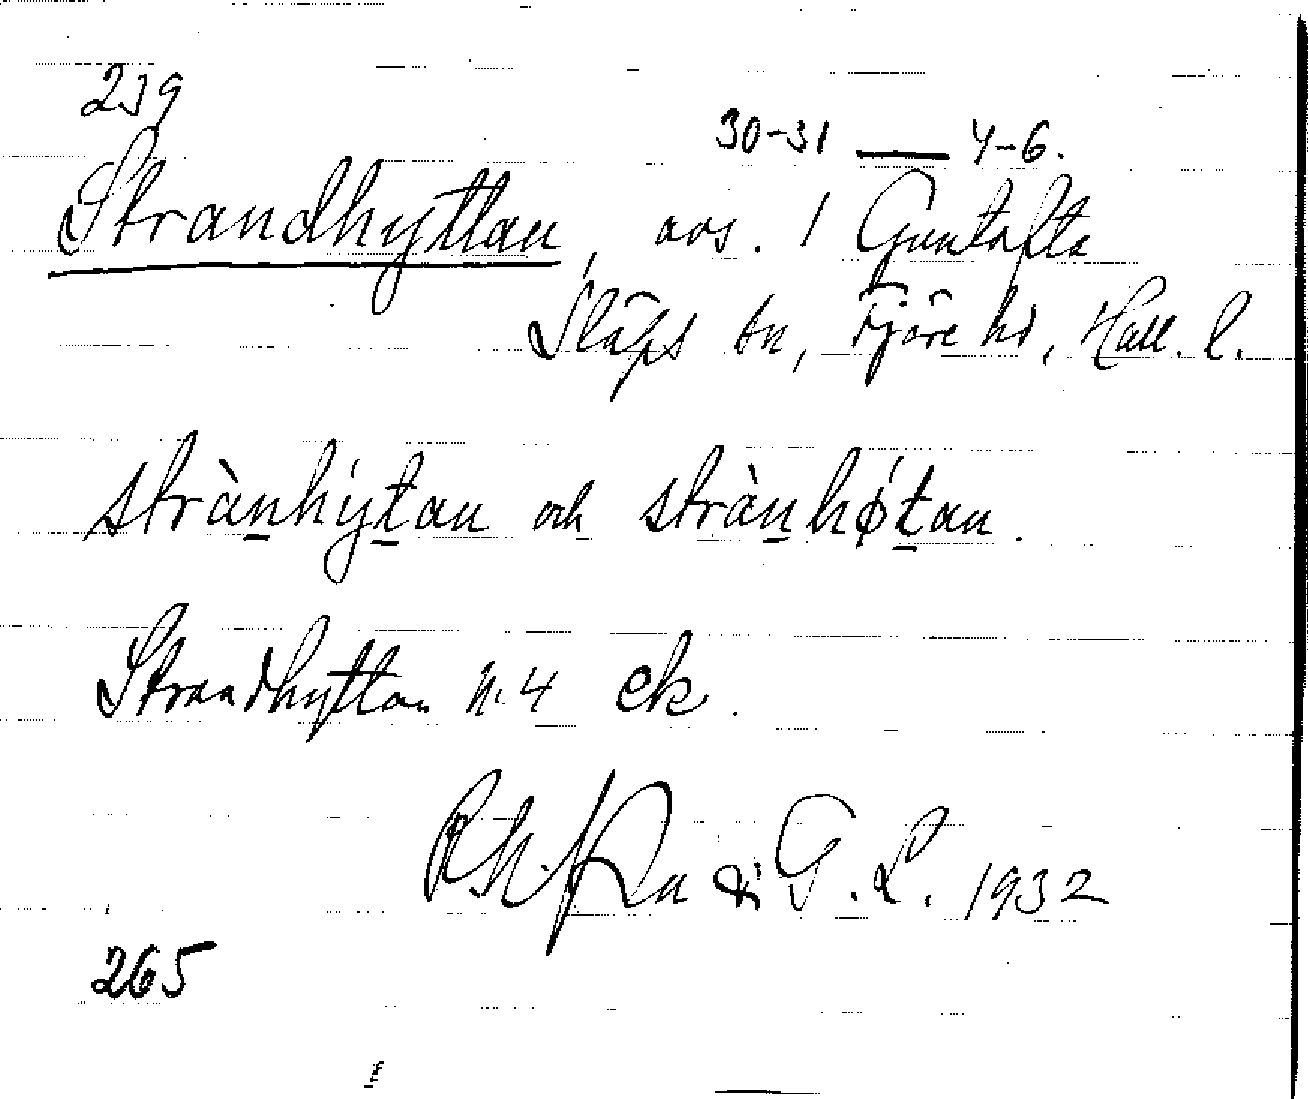 239
30-31 — 4-6.
Strandhyttan, avs. / Guntofta
Släps sn, Fjäre hd, Hall. l.
strànhýtan och strànhǿtan.
Strandhyttan n. 4 ek.
G. L. 1932
265